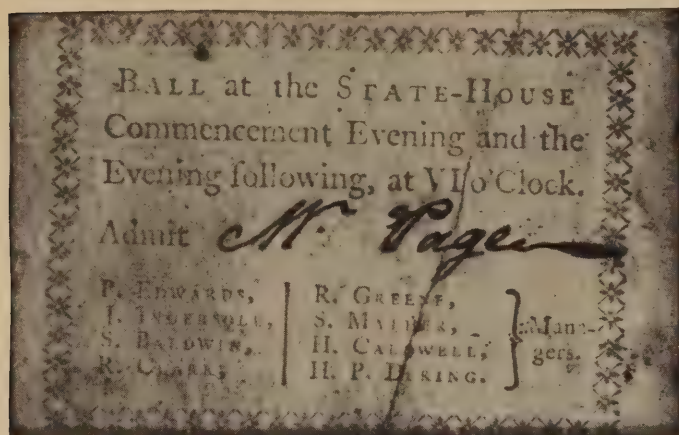 BALL at the STATE-HOUSE
Commencement Evening and the
Evening following, at VI o'Clock.
Admit Mr. Page
P. EDWARDS,
J. INGERSOLL,
S. BALDWIN,
R. CLARK,
R. GREENE,
S. MATHER,
H. CALDWELL,
H. P. DERING.
Mana-
gers.